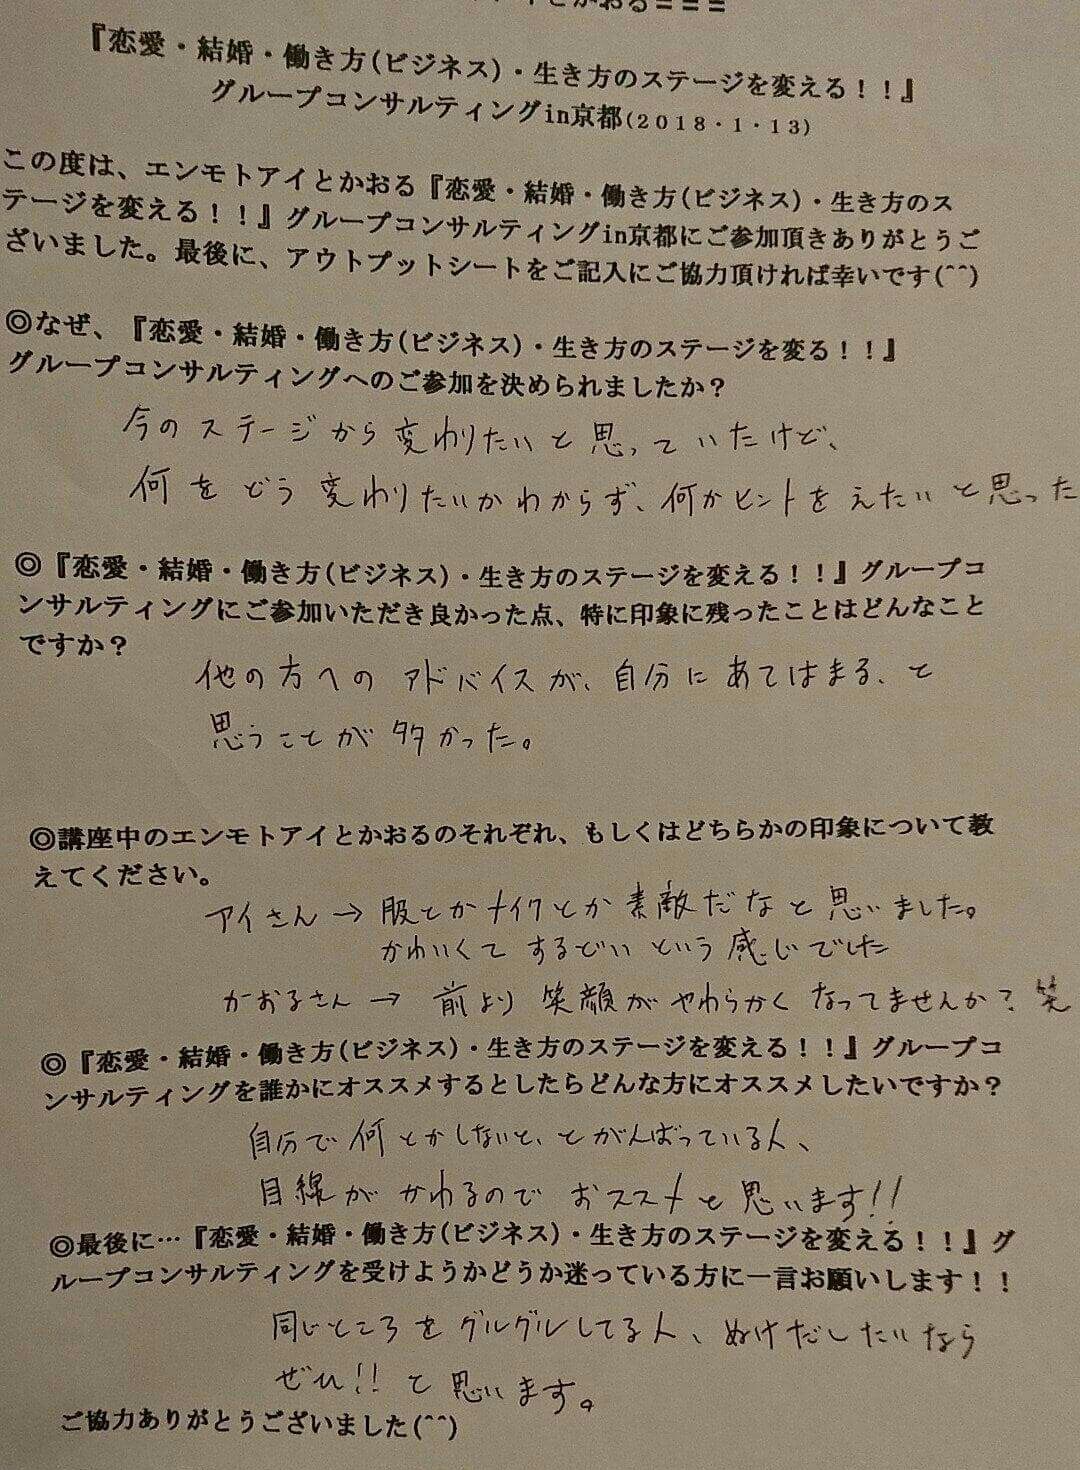 とかおる＝＝＝
『恋愛・結婚・働き方(ビジネス)・生き方のステージを変える！！』
グループコンサルティングin京都(２０１８・１・１３)
この度は、エンモトアイとかおる『恋愛・結婚・働き方(ビジネス)・生き方のス
テージを変える！！』グループコンサルティングin京都にご参加頂きありがとうご
ざいました。最後に、アウトプットシートをご記入にご協力頂ければ幸いです(^^)
◎なぜ、『恋愛・結婚・働き方(ビジネス)・生き方のステージを変る！！』
グループコンサルティングへのご参加を決められましたか？
今のステージから変わりたいと思っていたけど、
何をどう変わりたいかわからず、何かヒントをえたいと思った
◎『恋愛・結婚・働き方(ビジネス)・生き方のステージを変える！！』グループコ
ンサルティングにご参加いただき良かった点、特に印象に残ったことはどんなこと
ですか？
他の方へのアドバイスが、自分にあてはまる、と
思うことが多かった。
◎講座中のエンモトアイとかおるのそれぞれ、もしくはどちらかの印象について教
えてください。
アイさん→服とかメイクとか素敵だなと思いました。
かわいくてするどいという感じでした
かおるさん→前より笑顔がやわらかくなってませんか？笑
◎『恋愛・結婚・働き方(ビジネス)・生き方のステージを変える！！』グループコ
ンサルティングを誰かにオススメするとしたらどんな方にオススメしたいですか？
自分で何とかしないと、とがんばっている人、
目線がかわるのでおススメと思います!!
◎最後に…『恋愛・結婚・働き方(ビジネス)・生き方のステージを変える！！』グ
ループコンサルティングを受けようかどうか迷っている方に一言お願いします！！
同じところをグルグルしてる人、ぬけだしたいなら
ぜひ!!と思います。
ご協力ありがとうございました(^^)